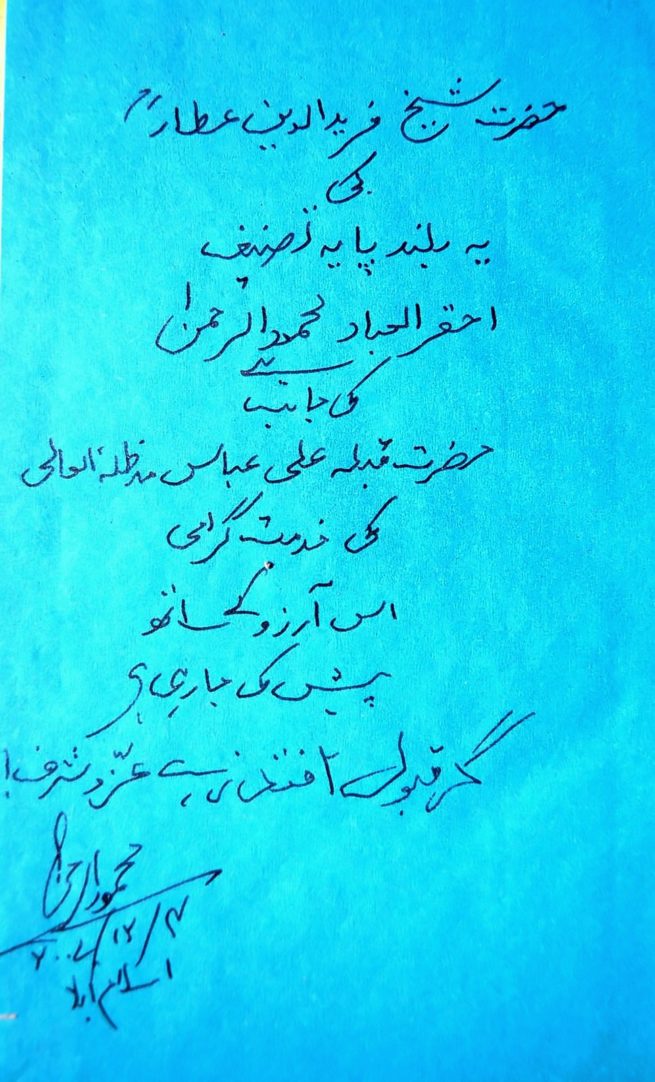 حضرت شیخ فرید الدین عطارؒ
کی
یہ بلند پایہ تصنیف
احقر العباد محمود الرحمن
کی جانب سے
حضرت قبلہ علی عباس مدظلہ العالی
کی خدمت گرامی
اس آرزو کے ساتھ
پیش کی جا رہی ہے
گر قبول افتد زہے عز و شرف!
محمود الرحمن
اسلام آباد